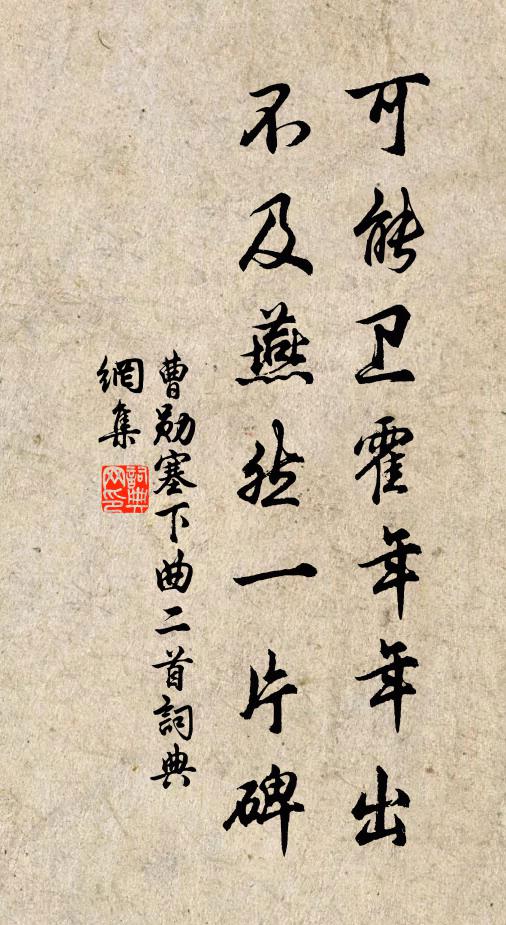 可能卫霍年年出
不及燕然一片碑
曹勋塞下曲二首詞典
網集
詞典
网印